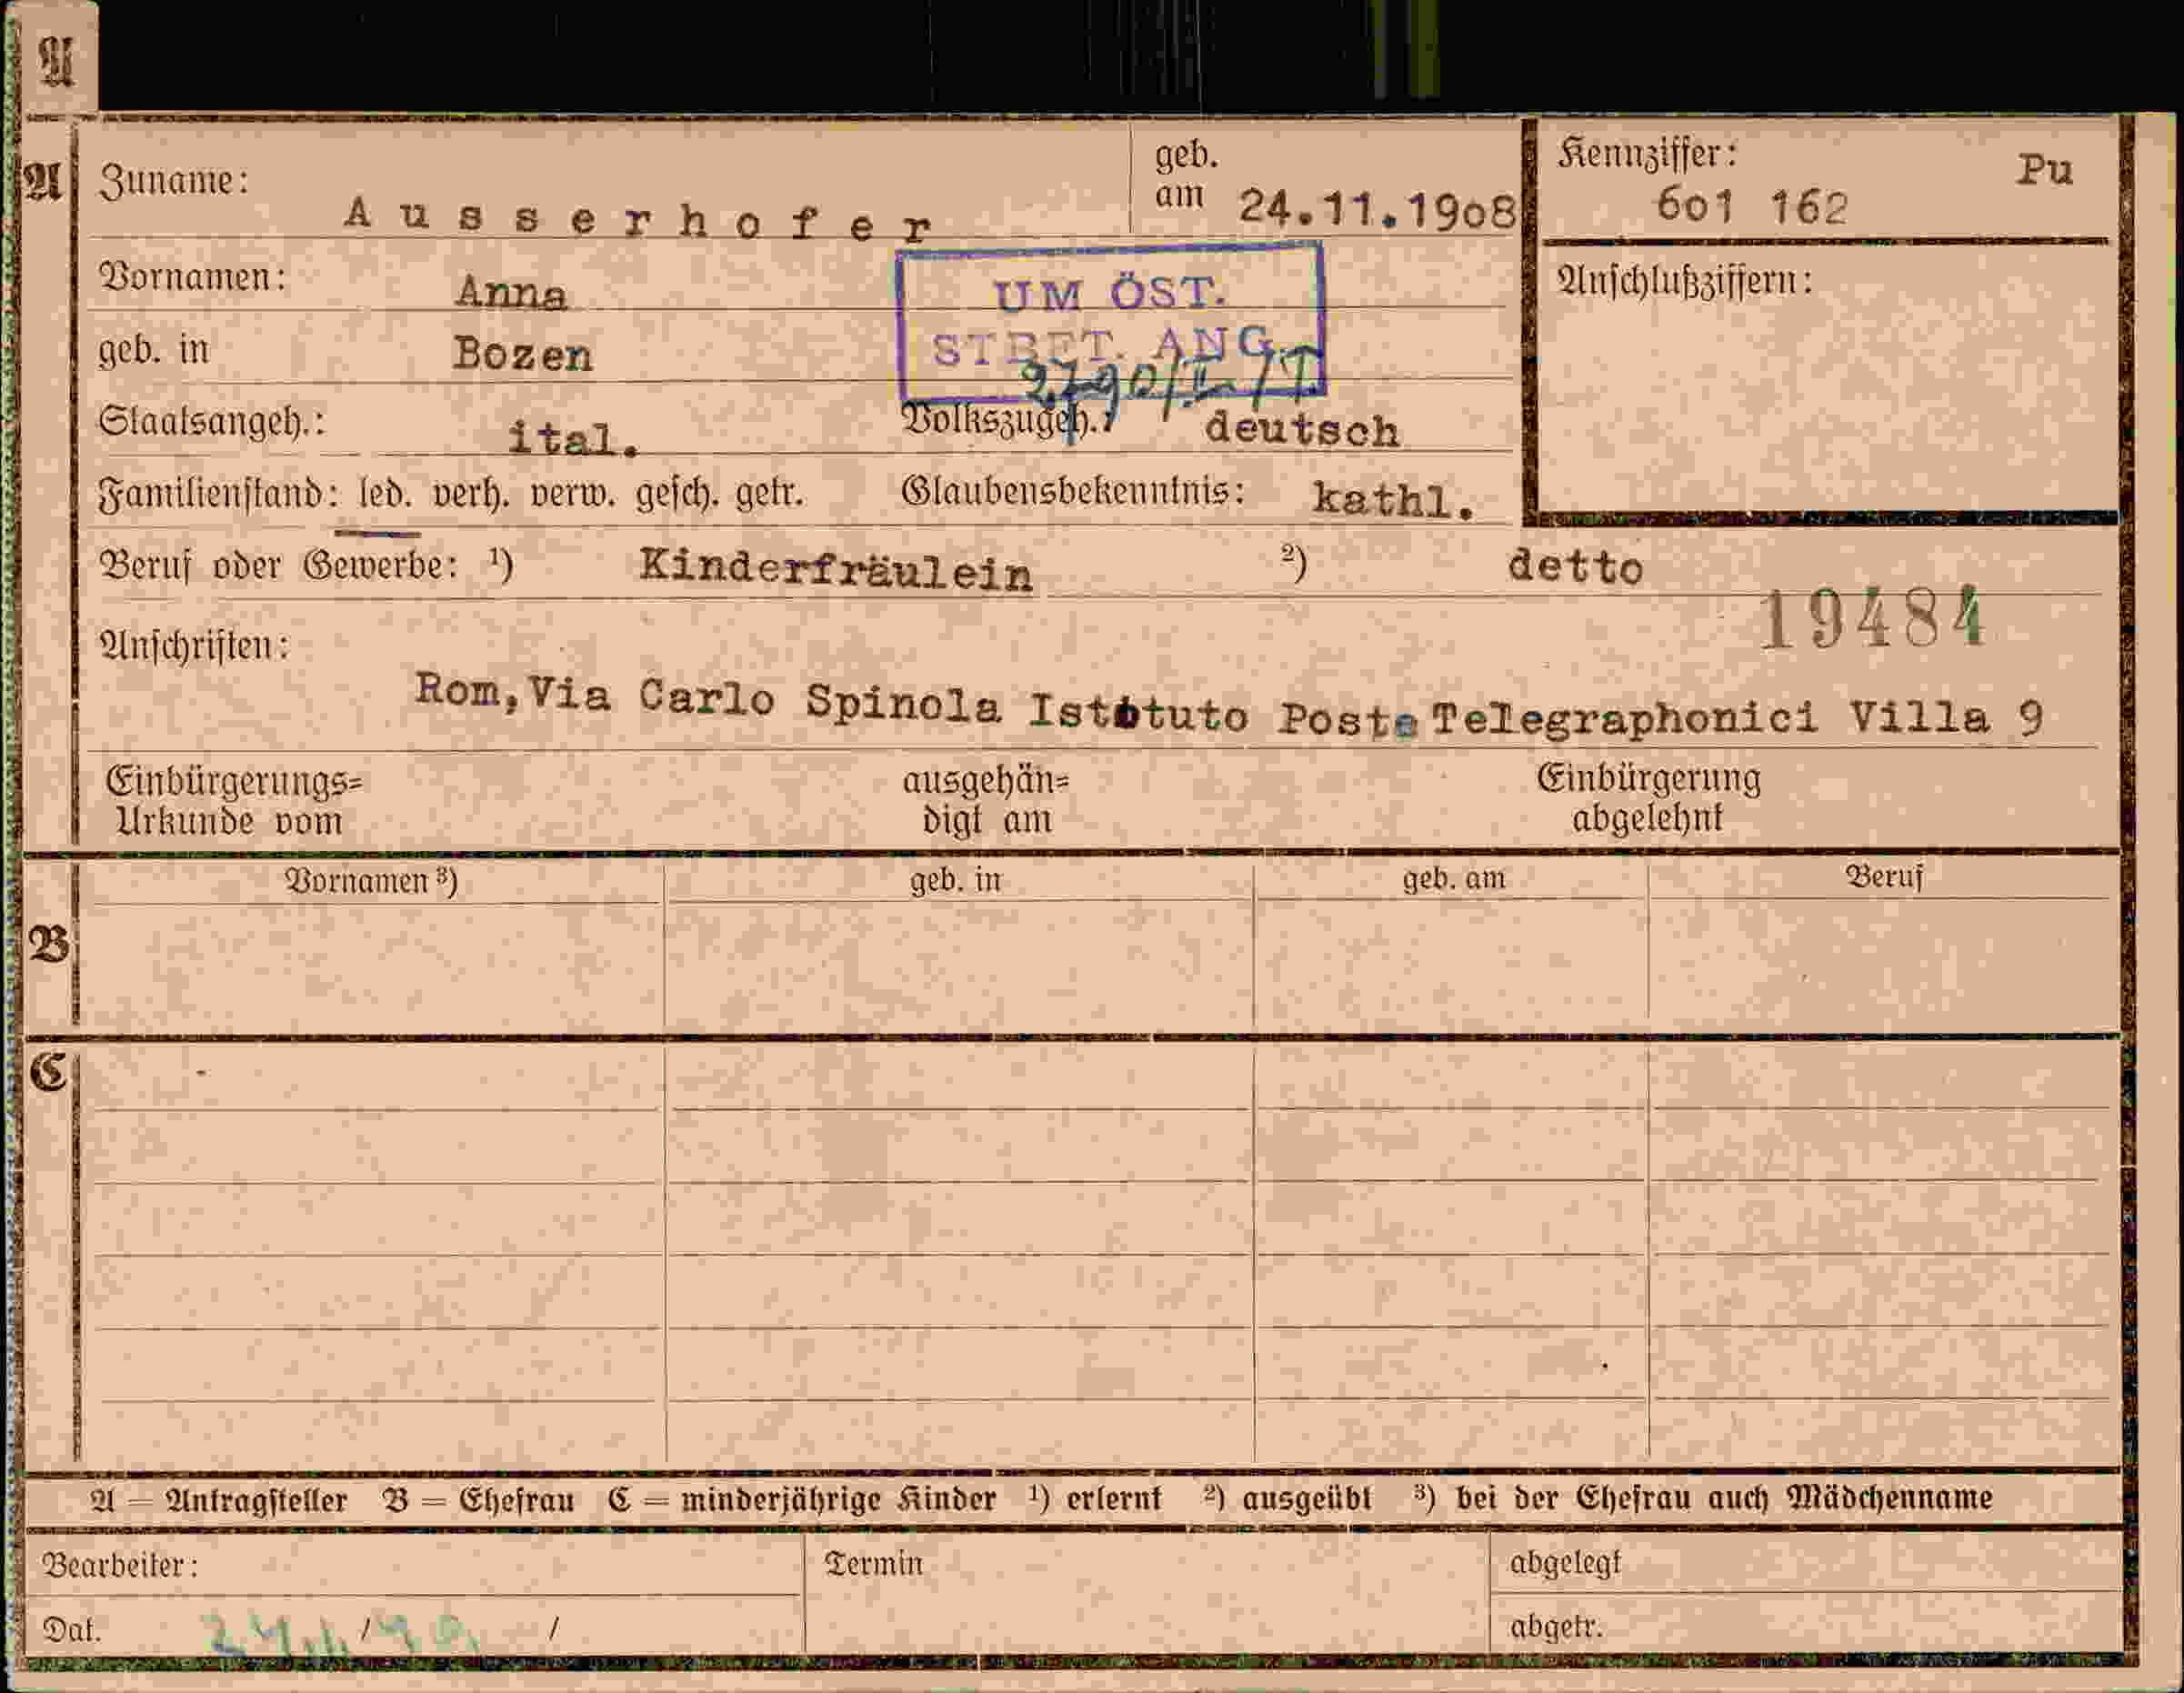 A
A
Zuname: Ausserhofer geb. am 24.11.1908
Kennziffer: 601 162 Pu
Vornamen: Anna
UM ÖST.
STBET. ANG.
Anschlußziffern:
geb. in Bozen
Staatsangeh.: ital. Volkszugeh.: deutsch
Familienstand: led. verh. verw. gesch. getr. Glaubensbekenntnis: kathl.
Beruf oder Gewerbe: ¹) Kinderfräulein ²) detto
19484
Anschriften:
Rom, Via Carlo Spinola Istituto Poste Telegraphonici Villa 9
Einbürgerungs=
Urkunde vom
ausgehän=
digt am
Einbürgerung
abgelehnt
Vornamen ³) geb. in geb. am Beruf
B
C
A = Antragsteller B = Ehefrau C = minderjährige Kinder ¹) erlernt ²) ausgeübt ³) bei der Ehefrau auch Mädchenname
Bearbeiter: Termin abgelegt
Dat. / / abgetr.